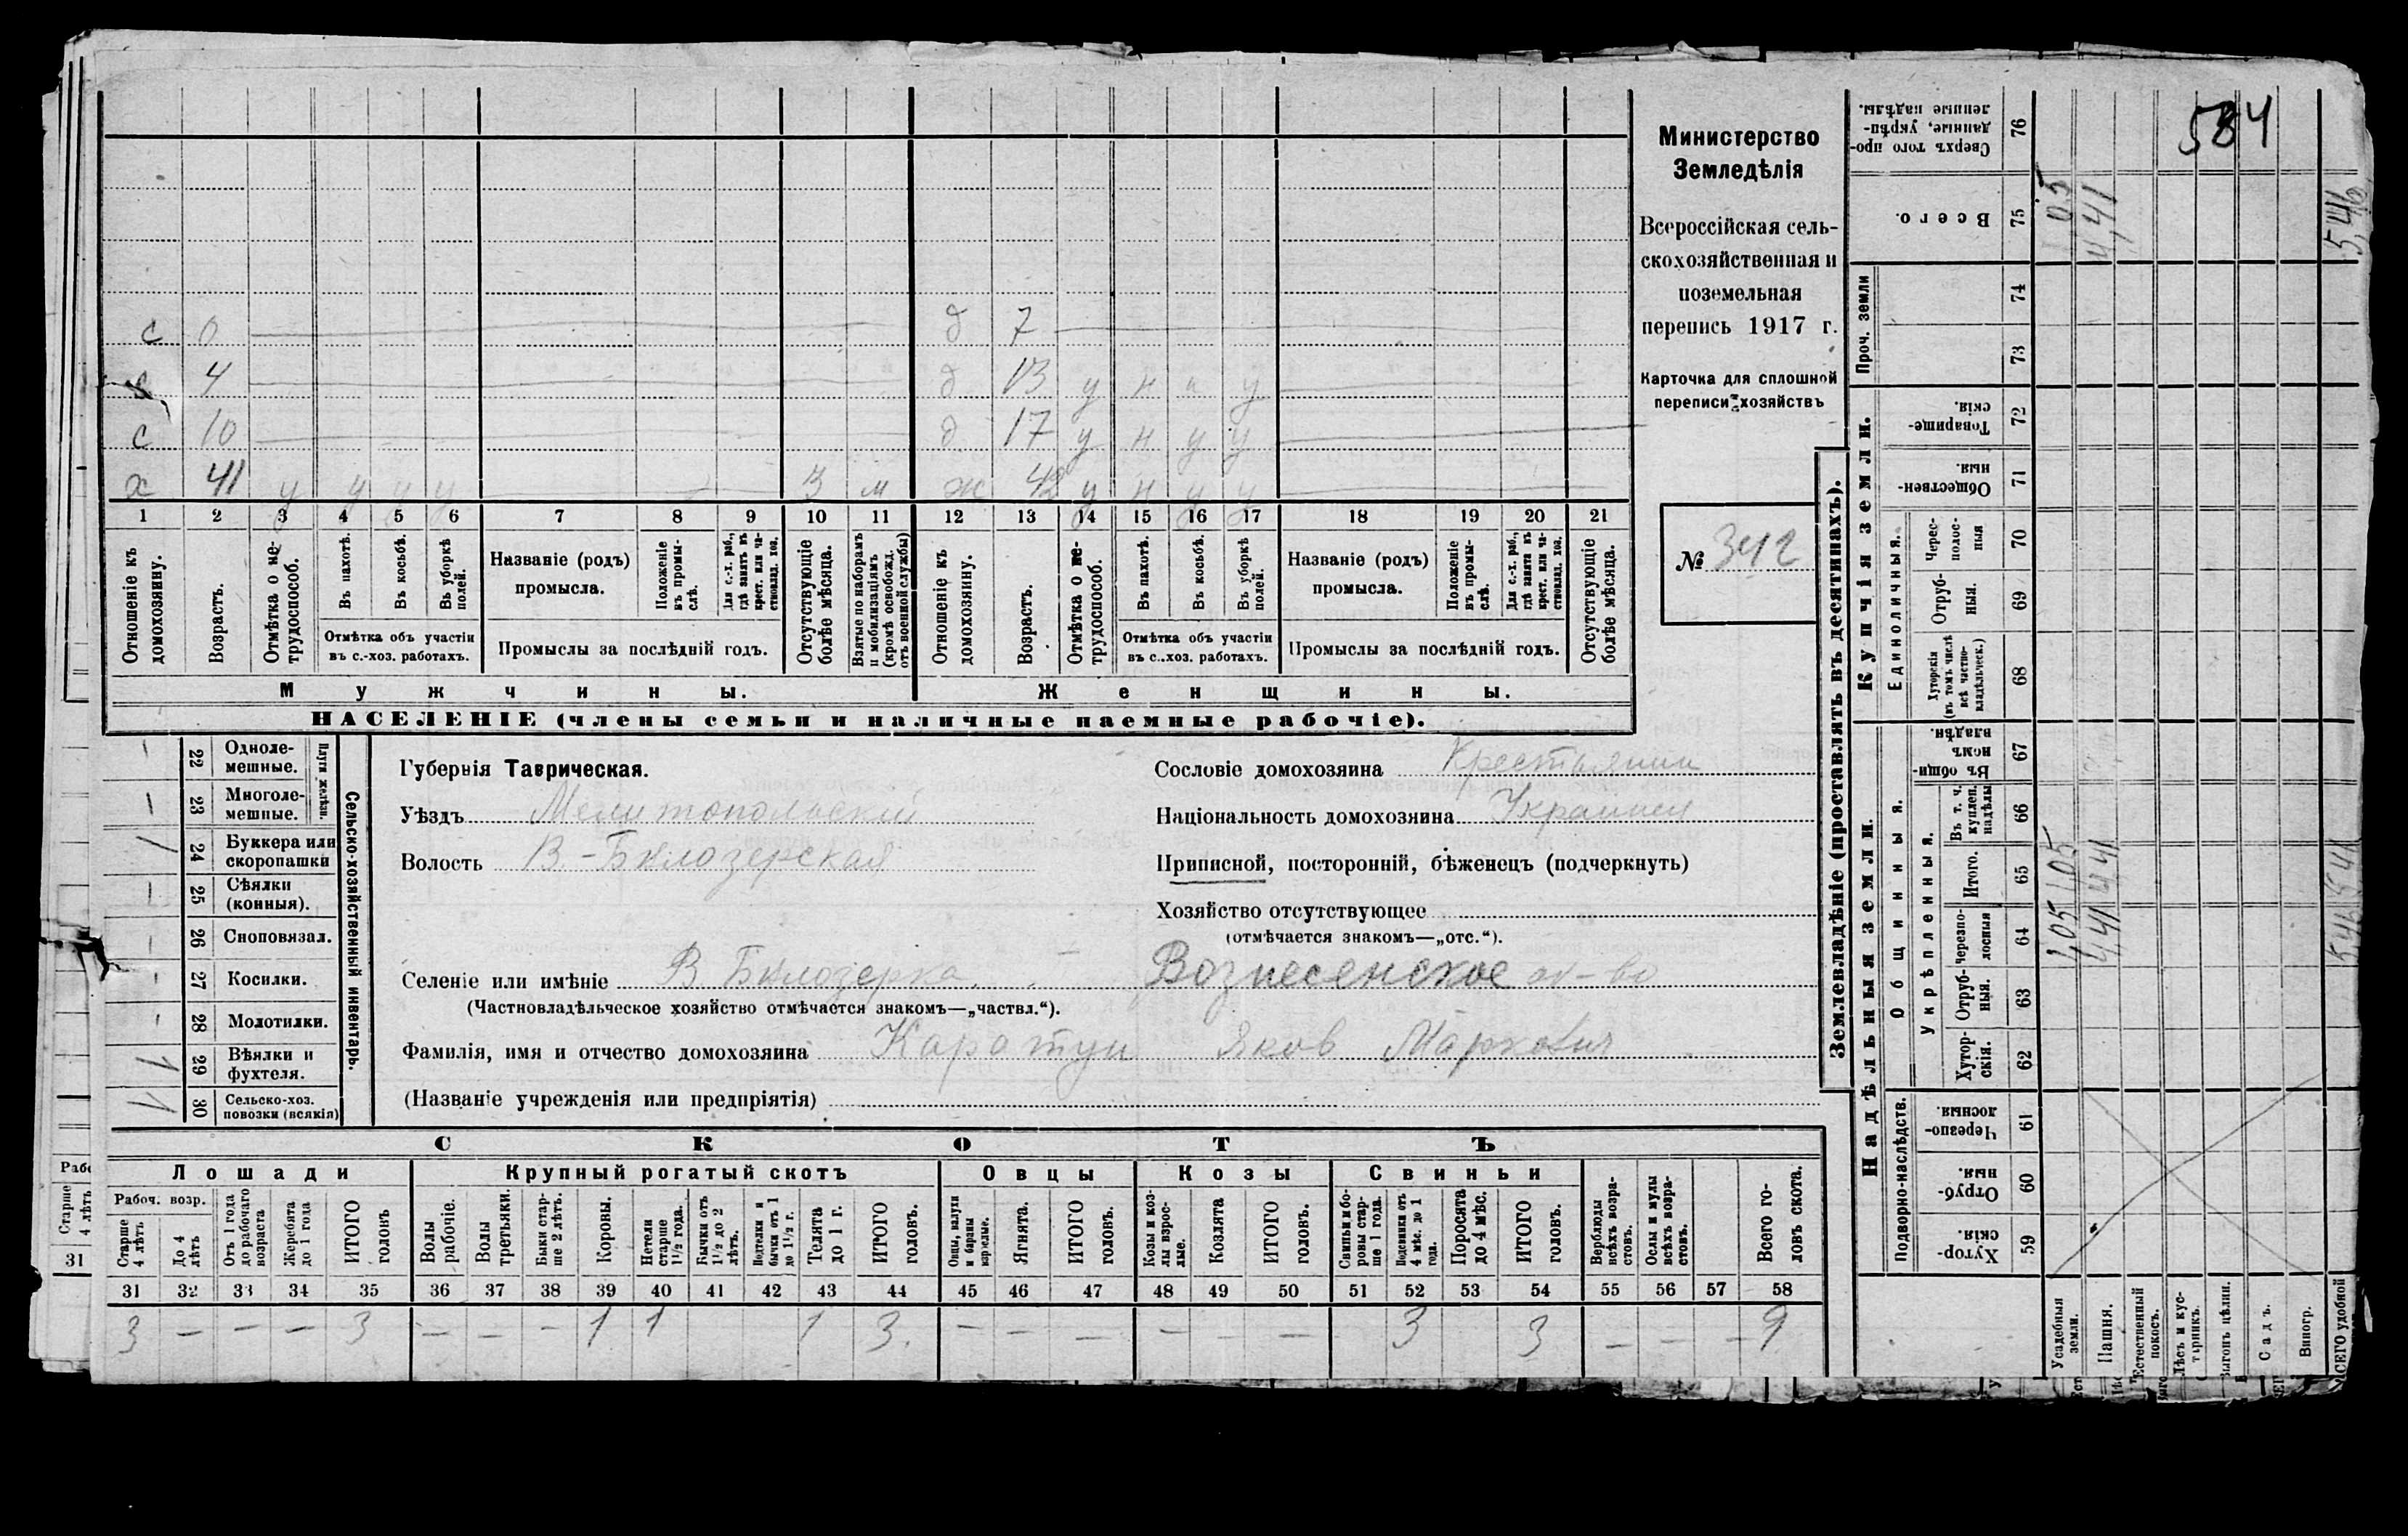 584
Министерство
Земледѣлія
Всероссійская сель-
скохозяйственная и
поземельная
перепись 1917 г.
Карточка для сплошной
переписи хозяйствъ
№ 342
с 0 д 7
с 4 д 13 у н и у
с 10 д 17 у н у у
х 41 у у у у 3 м ж 42 у н у у
1 2 3 4 5 6 7 8 9 10 11 12 13 14 15 16 17 18 19 20 21
Отношеніе къ домохозяину.
Возрастъ.
Отмѣтка о не-трудоспособ.
Въ пахотѣ.
Въ косьбѣ.
Въ уборкѣ полей.
Отмѣтка объ участіи
въ с.-хоз. работахъ.
Названіе (родъ)
промысла.
Положеніе въ промы-слѣ.
Для с.-х. раб., гдѣ занятъ въ крест. или ча-стновлад. хоз.
Промыслы за послѣдній годъ.
Отсутствующіе болѣе мѣсяца.
Взятые по наборамъ и мобилизаціямъ (кромѣ освобожд. отъ военной службы)
Отношеніе къ домохозяину.
Возрастъ.
Отмѣтка о не-трудоспособ.
Въ пахотѣ.
Въ косьбѣ.
Въ уборкѣ полей.
Отмѣтка объ участіи
въ с..хоз. работахъ.
Названіе (родъ)
промысла.
Положеніе въ промы-слѣ.
Для с.-х. раб., гдѣ занятъ въ крест. или ча-стновлад. хоз.
Промыслы за послѣдній годъ.
Отсутствующіе болѣе мѣсяца.
Мужчины. Женщины.
НАСЕЛЕНІЕ (члены семьи и наличные наемные рабочіе).
Сельско-хозяйственный инвентарь.
Плуги желѣзн.
22 Одноле-мешные.
23 Многоле-мешные.
24 Буккера или скоропашки
25 Сѣялки (конныя).
26 Сноповязал.
27 Косилки.
28 Молотилки.
29 Вѣялки и фухтеля. 1
30 Сельско-хоз. повозки (всякія) 1
Губернія Таврическая.
Уѣздъ Мелитопольский
Волость В.-Бѣлозерская
Сословіе домохозяина Крестьянин
Національность домохозяина Украинец
Приписной, посторонній, бѣженецъ (подчеркнуть)
Хозяйство отсутствующее
(отмѣчается знакомъ—„отс.“).
Селеніе или имѣніе В Бѣлозерка. Вознесенское об-во
(Частновладѣльческое хозяйство отмѣчается знакомъ—„частвл.“).
Фамилія, имя и отчество домохозяина Каратун Яков Маркович
(Названіе учрежденія или предпріятія)
СКОТЪ
Лошади Крупный рогатый скотъ Овцы Козы Свиньи
Рабоч. возр.
Старше 4 лѣтъ
До 4 лѣтъ
Отъ 1 года до рабочаго возраста
Жеребята до 1 года
ИТОГО головъ
Волы рабочіе.
Волы третьяки.
Быки стар-ше 2 лѣтъ.
Коровы.
Нетели старше 1½ года.
Бычки отъ 1½ до 2 лѣтъ.
Подтелки и бычки отъ 1 до 1½ г.
Телята до 1 г.
ИТОГО головъ.
Овцы, валухи и бараны взрослые.
Ягнята.
ИТОГО головъ.
Козы и коз-лы взрос-лые.
Козлята
ИТОГО головъ.
Свиньи и бо-ровы стар-ше 1 года.
Подсвинки отъ 4 мѣс. до 1 года.
Поросята до 4 мѣс.
ИТОГО головъ.
Верблюды всѣхъ возра-стовъ.
Ослы и мулы всѣхъ возра-стовъ.
Всего го-ловъ скота.
31 32 33 34 35 36 37 38 39 40 41 42 43 44 45 46 47 48 49 50 51 52 53 54 55 56 57 58
3 — — — 3 — — — 1 1 1 3. — — — — — — 3 3 — — — 9
Землевладѣніе (проставлять въ десятинахъ).
Надѣльныя земли. Купчія земли.
Подворно-наслѣдств.
Общинныя.
Укрѣпленныя.
Единоличныя.
Проч. земли
Хутор-скія. 59
Отруб-ныя. 60
Черезпо-лосныя. 61
Хутор-скія. 62
Отруб-ныя. 63
Черезпо-лосныя 64
Итого. 65
Въ т. ч. куплен. надѣлы 66
Въ общи-номъ владѣн. 67
Хуторскія (въ томъ числѣ всѣ частно-владѣльческ.) 68
Отруб-ныя. 69
Черес-полос-ныя 70
Обществен-ныя. 71
Товарище-скія. 72
73
74
Всего. 75
Сверхъ того про-данные, укрѣп-ленные надѣлы. 76
Усадебныя земли. 1,05 1,05 1,05
Пашня. 4,41 4,41 4,41
Естественный покосъ.
Лѣсъ и кус-тарникъ.
Выгонъ цѣлин.
Садъ.
Виногр.
ВСЕГО удобной 5,46 5,46 5,46
Старше 4 лѣтъ
31